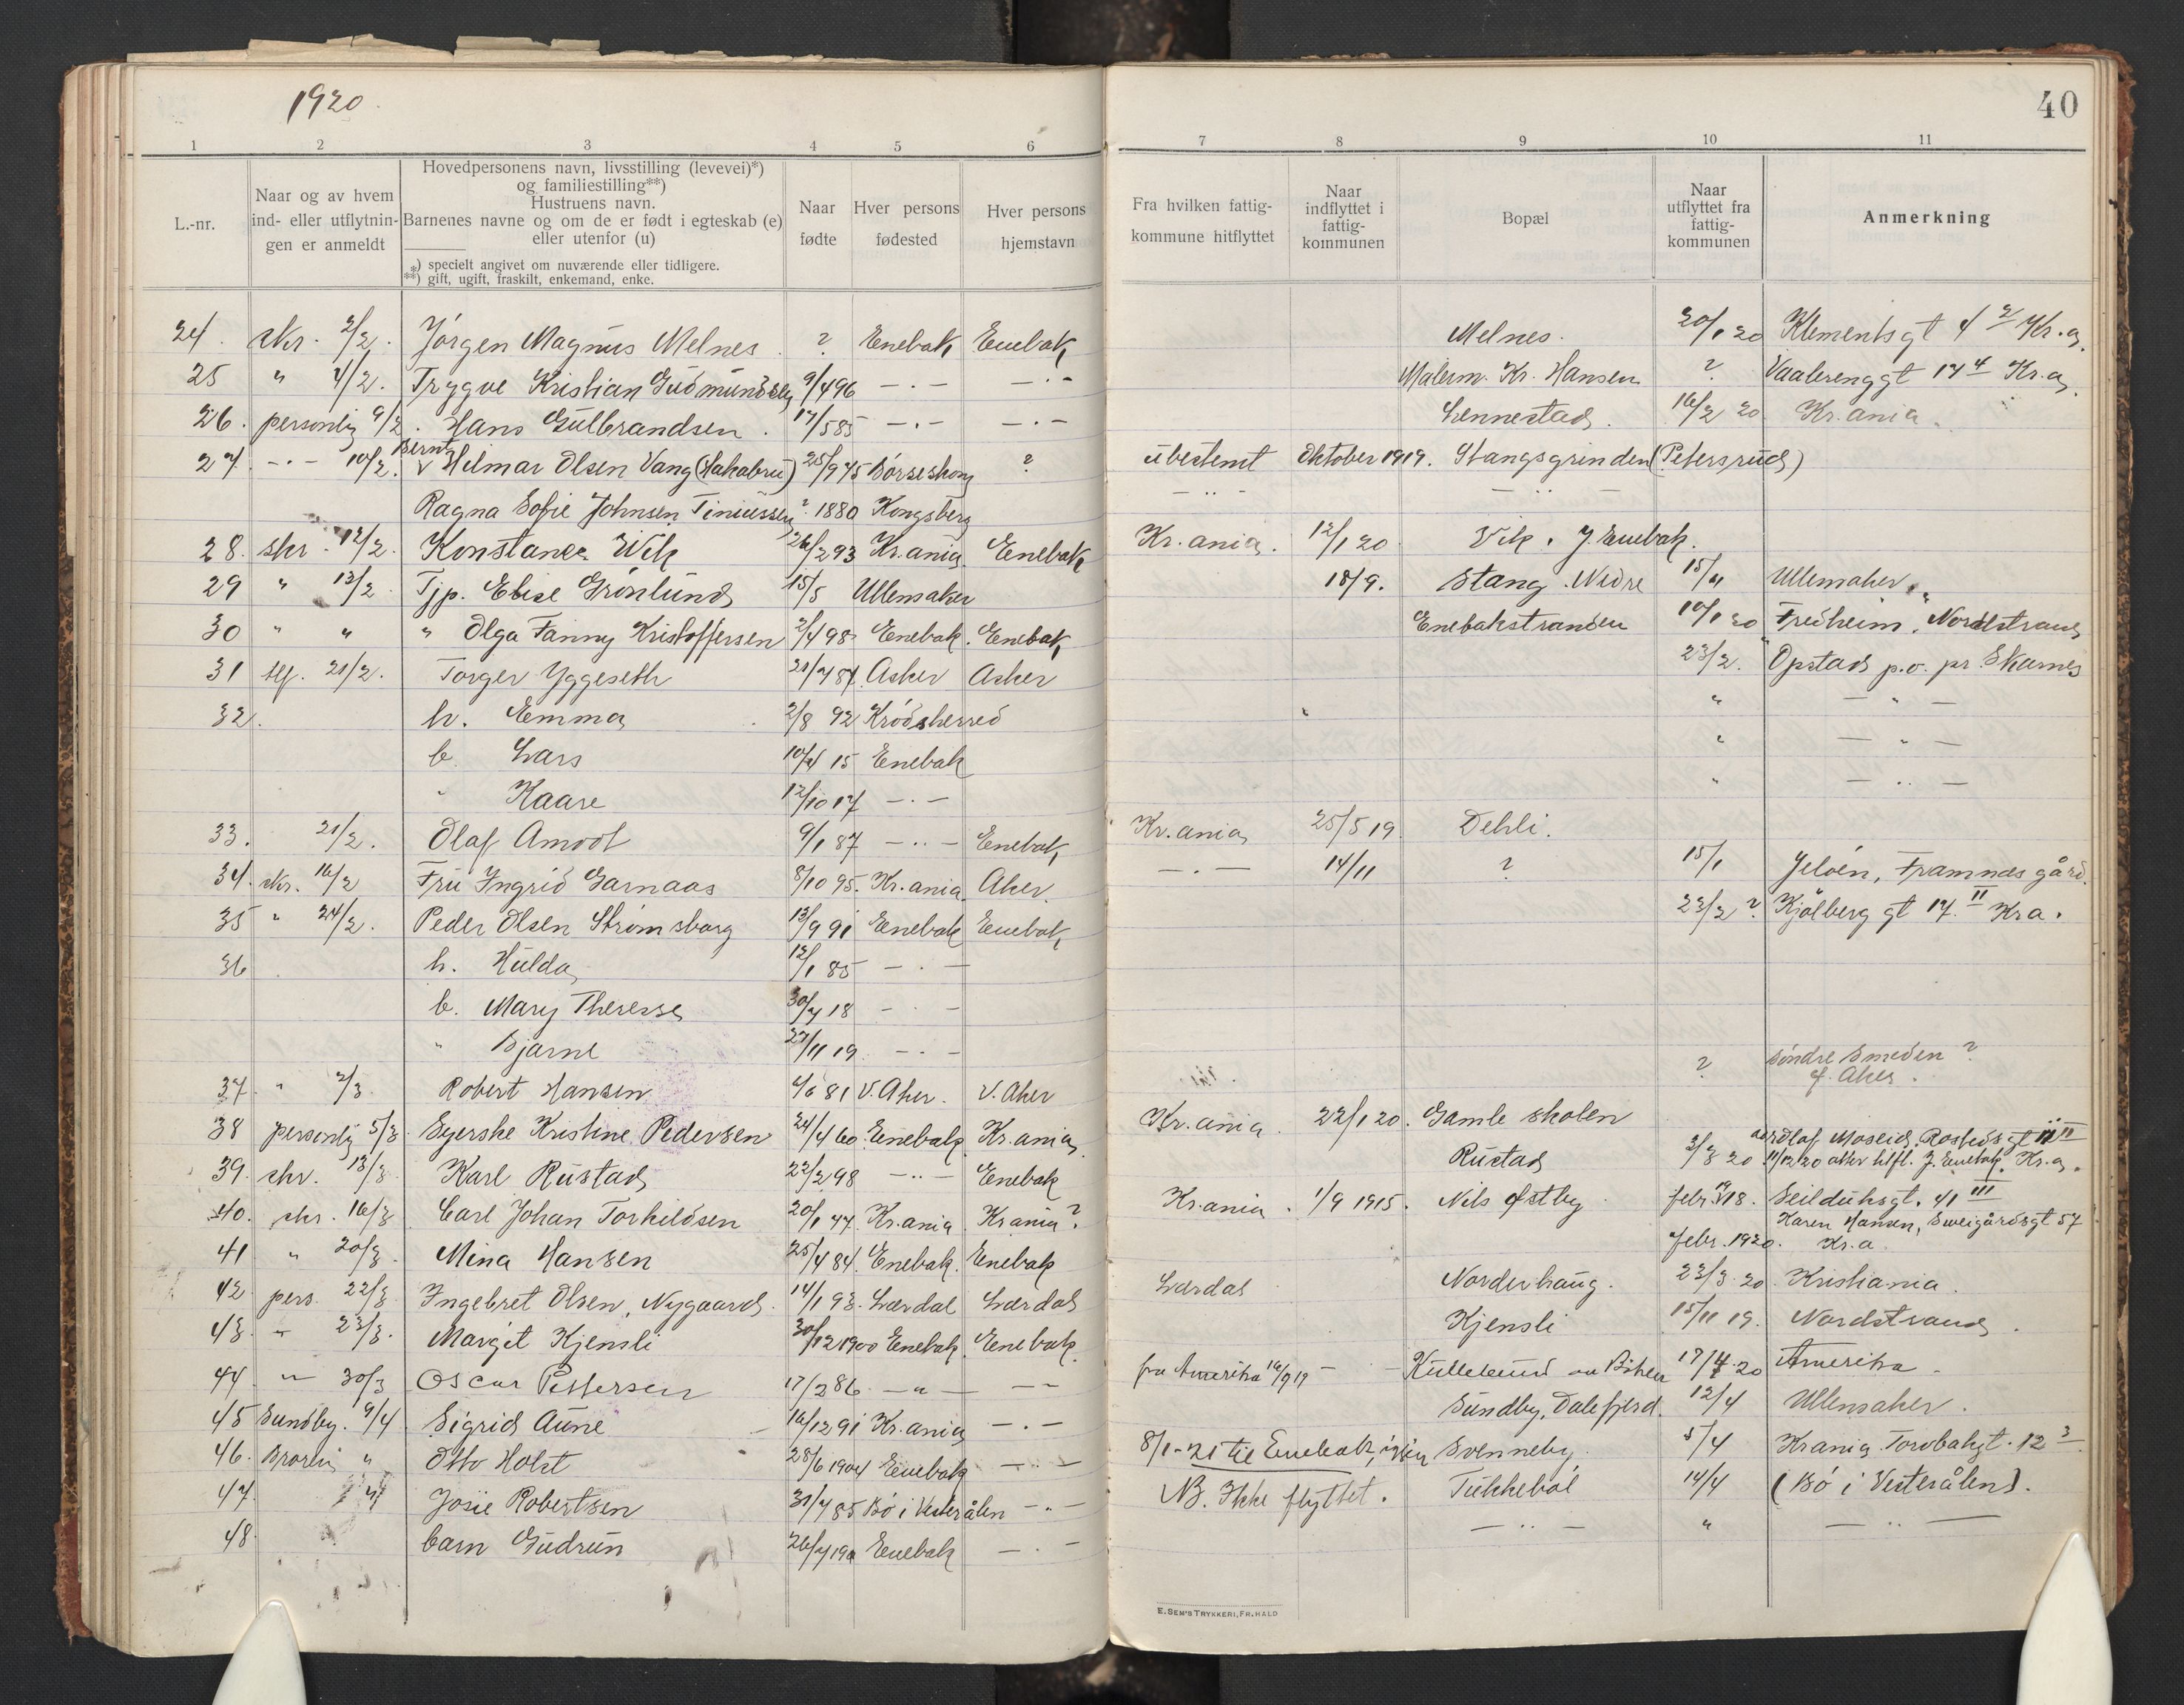 1920.
40
1 2 3 4 5 6 7 8 9 10 11
L.-nr.
Naar og av hvem ind- eller utflytnin- gen er anmeldt
Hovedpersonens navn, livsstilling (levevei)*)
og familiestilling**)
Hustruens navn.
Barnenes navne og om de er født i egteskab (e)
eller utenfor (u)
*) specielt angivet om nuværende eller tidligere.
**) gift, ugift, fraskilt, enkemand, enke.
Naar fødte
Hver persons fødested
Hver persons hjemstavn
Fra hvilken fattig- kommune hitflyttet
Naar indflyttet i fattig- kommunen
Bopæl
Naar utflyttet fra fattig- kommunen
Anmerkning
24. skr. 2/2. Jørgen Magnus Melnes. ? Enebak Enebak Melnes. 20/1 20 Klementsgt 4 2 Kr.a.
25 " 4/2. Trygve Kristian Gudmundsen 9/4 96 — . — — . — Malerm. Kr. Hansen ? Vaalerenggt 17 4 Kr.a.
26. personlig 9/2. Hans Gulbrandsen. 17/5 85 — . — — . — Lennestad. 16/2 20 Kr.ania.
27. — . — 10/2. Bernt Hilmar Olsen Vang (Hakabru) 25/9 75 Børseskogn ? ubestemt Oktober 1919. Stangsgrinden (Petersrud)
Ragna Sofie Johnsen Tiniussen ? 1880 Kongsberg — .. — — .. —
28. skr. 12/2. Konstance Wik 26/2 93 Kr.ania. Enebak Kr.ania. 12/1 20 Vik. Y. Enebak.
29 " 13/2 Tjp. Elise Grønlund 15/5 Ullensaker 18/9. Stang Nedre 15/11 Ullensaker.
30 " " " Olga Fanny Kristoffersen 2/4 98 Enebak. Enebak Enebakstranden 10/1 20 Fredheim, Nordstrand
31 tlf. 21/2. Torger Yggeseth 21/7 87. Asker Asker 23/2. Opstad p.o. pr. Skarnes
32. h. Emma 2/8 92 Krødsherred " — " —
b. Lars 10/4 15 Enebak " — " —
" Kaare 12/10 17 — . — " — .. —
33. 21/2. Olaf Amodt 9/1 87 — .. — Enebak Kr.ania 25/5 19. Dehli.
34. skr. 16/2 Fru Ingrid Garnaas 8/10 95. Kr.ania. Aker. — . — 14/11 ? 15/1 Jeløen, Framnæs gård.
35 " 24/2. Peder Olsen Strømsborg 13/9 91 Enebak Enebak 23/2 ? Kjølberg gt 17. II Kr.a.
36. h. Hulda 12/1 85 — . —
b. Mary Therese 30/7 18 — . —
" Bjarne 27/11 19 — . —
37. " 2/3. Robert Hansen 4/6 81 V. Aker. V. Aker ? søndre Smeden ?
Aker.
38 personlig 5/3. Syerske Kristine Pedersen 24/4 60. Enebak Kr.ania Kr.ania. 22/1 20. Gamle skolen
39. skr. 13/3. Karl Rustad 22/2 98 — .. — Enebak Rustad 3/3 20 Olaf Moseid,
11/12 20 atter tilfl. Y. Enebak. Kr.a.
40. skr. 16/3 Carl Johan Torkildsen 20/1 47. Kr.ania Krania? Kr.ania. 1/9 1915. Nils Østby. febr. 1918. Seilduksgt. 41 III
41 " 20/3. Mina Hansen 25/4 84. Enebak. Enebak febr. 1920. Karen Hansen, Sweigårdsgt 57
Kr.a.
42 pers. 22/3 Ingebret Olsen, Nygaard. 14/1 93. Lærdal Lærdal Lærdal Norderhaug. 23/3 20 Kristiania.
43. " 23/3. Margit Kjensli 30/12 1900 Enebak. Enebak. Kjensli 15/11 19. Nordstrand.
44 " 30/3 Oscar Pettersen 17/2 86 — " — — — fra Amerika 16/9 19 17/4 20 Amerika
45 Sundby. 9/4 Sigrid Aune 16/12 91 Kr.ania — . — Sundby, Dalefjerd. 12/4 Ullensaker.
46. " Otto Holst 28/6 1904 Enebak — .. — 8/1-21 til Enebak, igjen Svenneby. 5/4 Krania Torvbakgt. 12 3
47. " Josie Robertsen 31/7 85 Bø i Vesterålen — . — NB. Ikke flyttet. Tukkebøl 14/4 (Bø i Vesterålen).
48. barn Gudrun Enebak — . — — .. — " — .. —
E. SEM'S TRYKKERI, FR.HALD